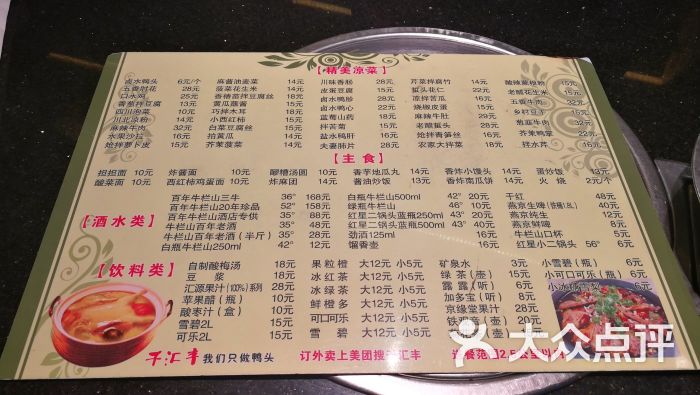 【精美凉菜】
卤水鸭头 6元/个
五香肘花 28元
口水鸡 25元
香葱拌豆腐 13元
四川泡菜 10元
川北凉粉 14元
麻辣牛肉 32元
水果沙拉 16元
炝拌萝卜皮 15元
麻酱油麦菜 14元
菠菜花生米 14元
香椿苗拌豆腐丝 15元
黄瓜蘸酱 15元
巧拌木耳 18元
小西红柿 15元
白菜豆腐丝 15元
拍黄瓜 14元
芥茉菠菜 15元
川味香肠 28元
皮蛋豆腐 15元
卤水鸭胗 28元
卤水鸭心
蓝莓山药 18元
拌苦菊 15元
老醋蜇头 28元
盐水鸭肝
夫妻肺片 28元
芹菜拌腐竹 14元
蜇头花仁
凉拌苦瓜 16元
烧椒皮蛋 22元
麻辣牛肚 28元
炝拌青笋丝 15元
农家大拌菜 18元
酸辣蕨根粉 15元
老醋花生米 15元
五香牛肉 32元
乡村豆干
葱韮牛肉
芥茉鸭掌
拌水芹
【主食】
担担面 10元
酸菜面 10元
炸酱面 10元
西红柿鸡蛋面 10元
醪糟汤圆 10元
炸麻团 14元
香芋地瓜丸 14元
酱油炒饭 13元
香炸小馒头 14元
香炸南瓜饼 14元
蛋炒饭 13元
火烧 2元/个
【酒水类】
百年牛栏山三牛 36° 168元
百年牛栏山20年珍品 52° 158元
百年牛栏山酒店专供 35° 88元
牛栏山百年老酒 52° 88元
牛栏山百年老酒(半斤) 35°
白瓶牛栏山250ml 42° 12元
白瓶牛栏山500ml 42° 20元
绿瓶牛栏山 46° 16元
红星二锅头蓝瓶250ml 43°
红星二锅头蓝瓶500ml 43°
劲酒125ml
馏香壶
干红 48元
燕京生啤
燕京纯生 12元
燕京鲜啤 8元
牛栏山口杯 5元
红星小二锅头 56° 6元
【饮料类】
自制酸梅汤 18元
豆浆 18元
汇源果汁(100%)系列 28元
苹果醋(瓶) 10元
酸枣汁(盒) 10元
雪碧2L 15元
可乐2L 15元
果粒橙 大12元 小5元
冰红茶 大12元 小5元
冰绿茶 大12元 小5元
鲜橙多 大12元 小5元
可口可乐 大12元 小5元
雪碧 大12元 小5元
矿泉水 3元
绿茶(壶) 15元
露露(听) 8元
加多宝(听) 8元
京缘堂果汁 28元
小雪碧(瓶) 6元
小可口可乐(瓶) 6元
千汇丰 我们只做鸭头
订外卖上美团搜千汇丰
大众点评